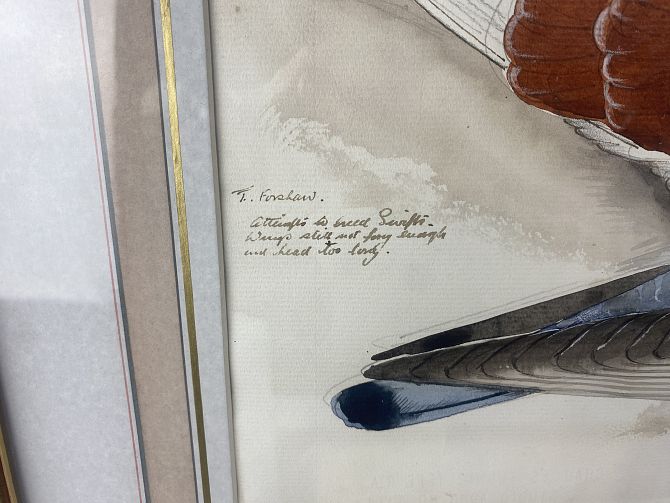 T. Forshaw.
Attempts to breed Swifts.
Wings still not long enough
and head too long.